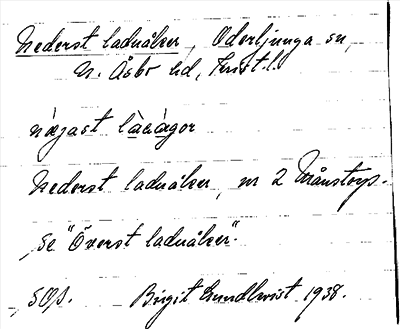 Nederst laduåker, Oderljunga sn,
N. Åsbo hd, Krist. l.
nèjast làɑàgor
Nederst laduåker, nr 2 Månstorp.
Se "Överst laduåker".
SOf. Birgit Sundkvist 1938.